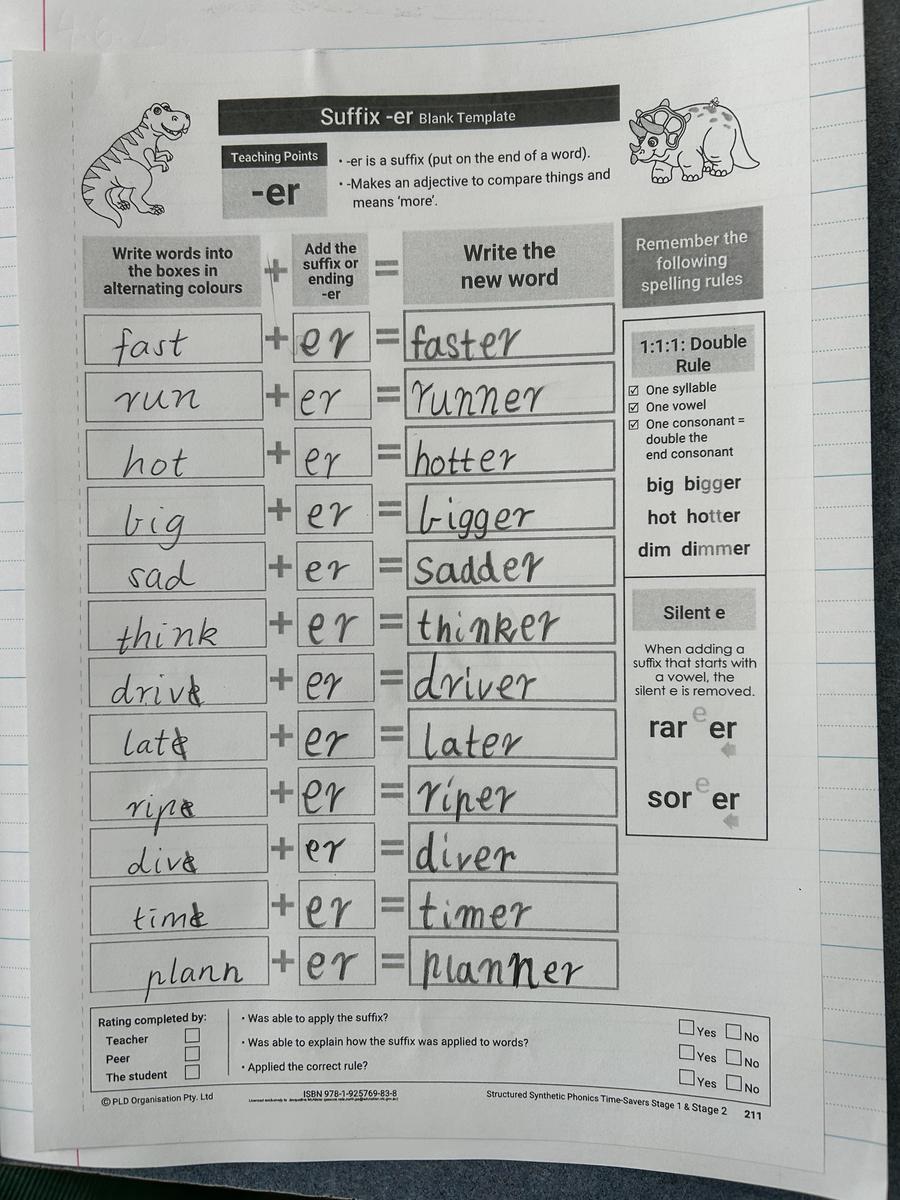 Suffix -er Blank Template
Teaching Points
-er
• -er is a suffix (put on the end of a word).
• -Makes an adjective to compare things and
means 'more'.
Write words into
the boxes in
alternating colours
+
Add the
suffix or
ending
-er
=
Write the
new word
Remember the
following
spelling rules
fast + er = faster
run + er = runner
hot + er = hotter
big + er = bigger
sad + er = sadder
think + er = thinker
drive + er = driver
late + er = later
ripe + er = riper
dive + er = diver
time + er = timer
plann + er = planner
1:1:1: Double
Rule
☑ One syllable
☑ One vowel
☑ One consonant =
double the
end consonant
big bigger
hot hotter
dim dimmer
Silent e
When adding a
suffix that starts with
a vowel, the
silent e is removed.
rar e er
sor e er
Rating completed by:
Teacher
Peer
The student
• Was able to apply the suffix? Yes No
• Was able to explain how the suffix was applied to words? Yes No
• Applied the correct rule? Yes No
© PLD Organisation Pty. Ltd
ISBN 978-1-925769-83-8
Structured Synthetic Phonics Time-Savers Stage 1 & Stage 2 211